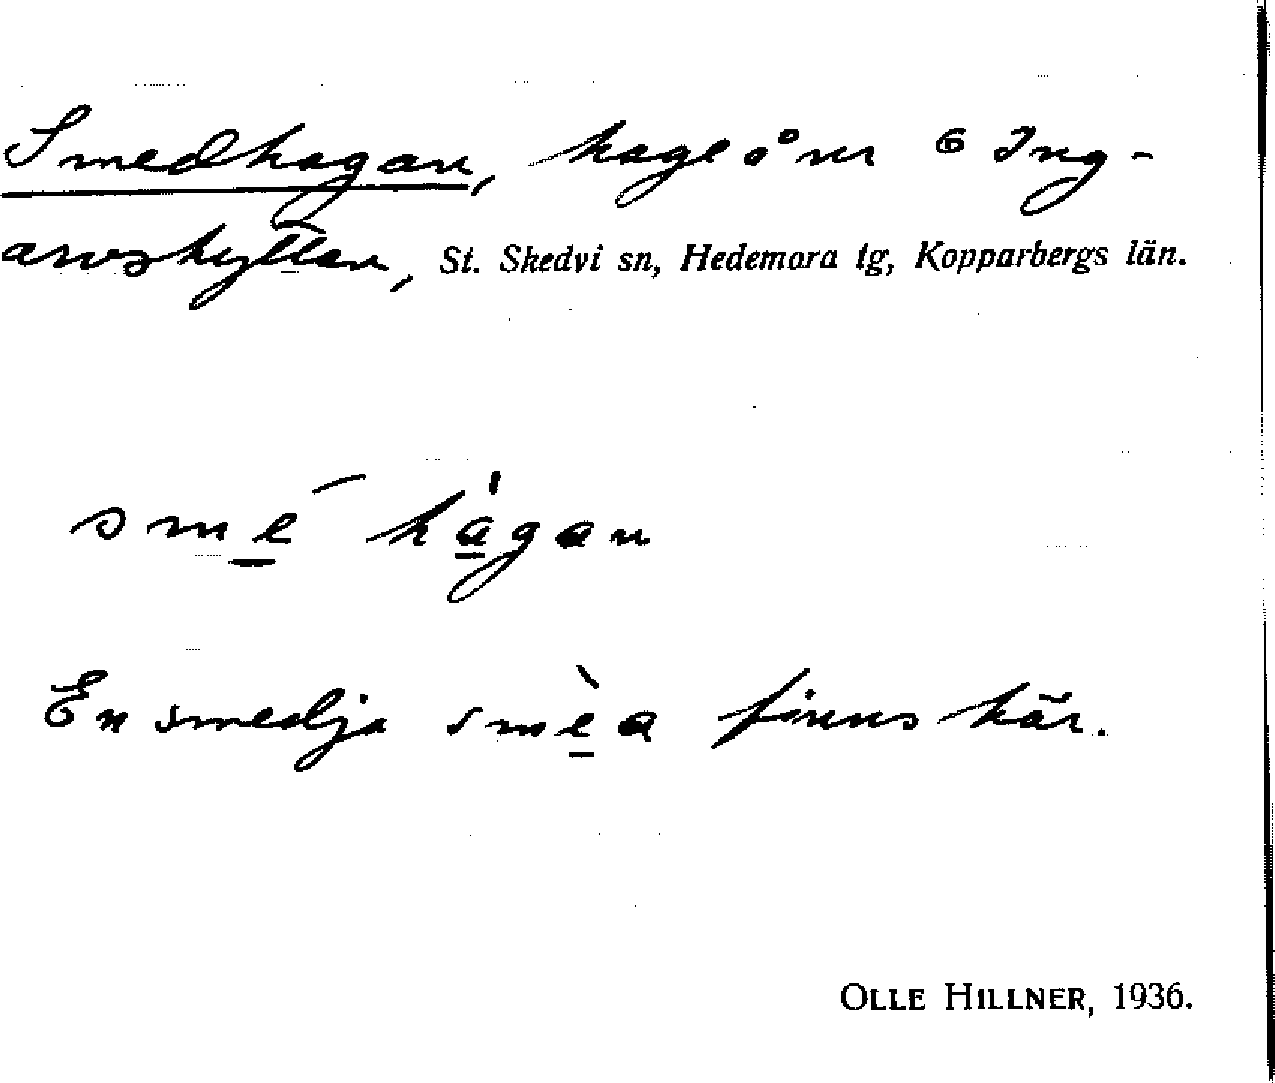 Smedhagan, hage önr 6 Ing-
arvshyttan, St. Skedvi sn, Hedemora tg, Kopparbergs län.
smē hágan
En smedja smèa finns här.
OLLE HILLNER, 1936.